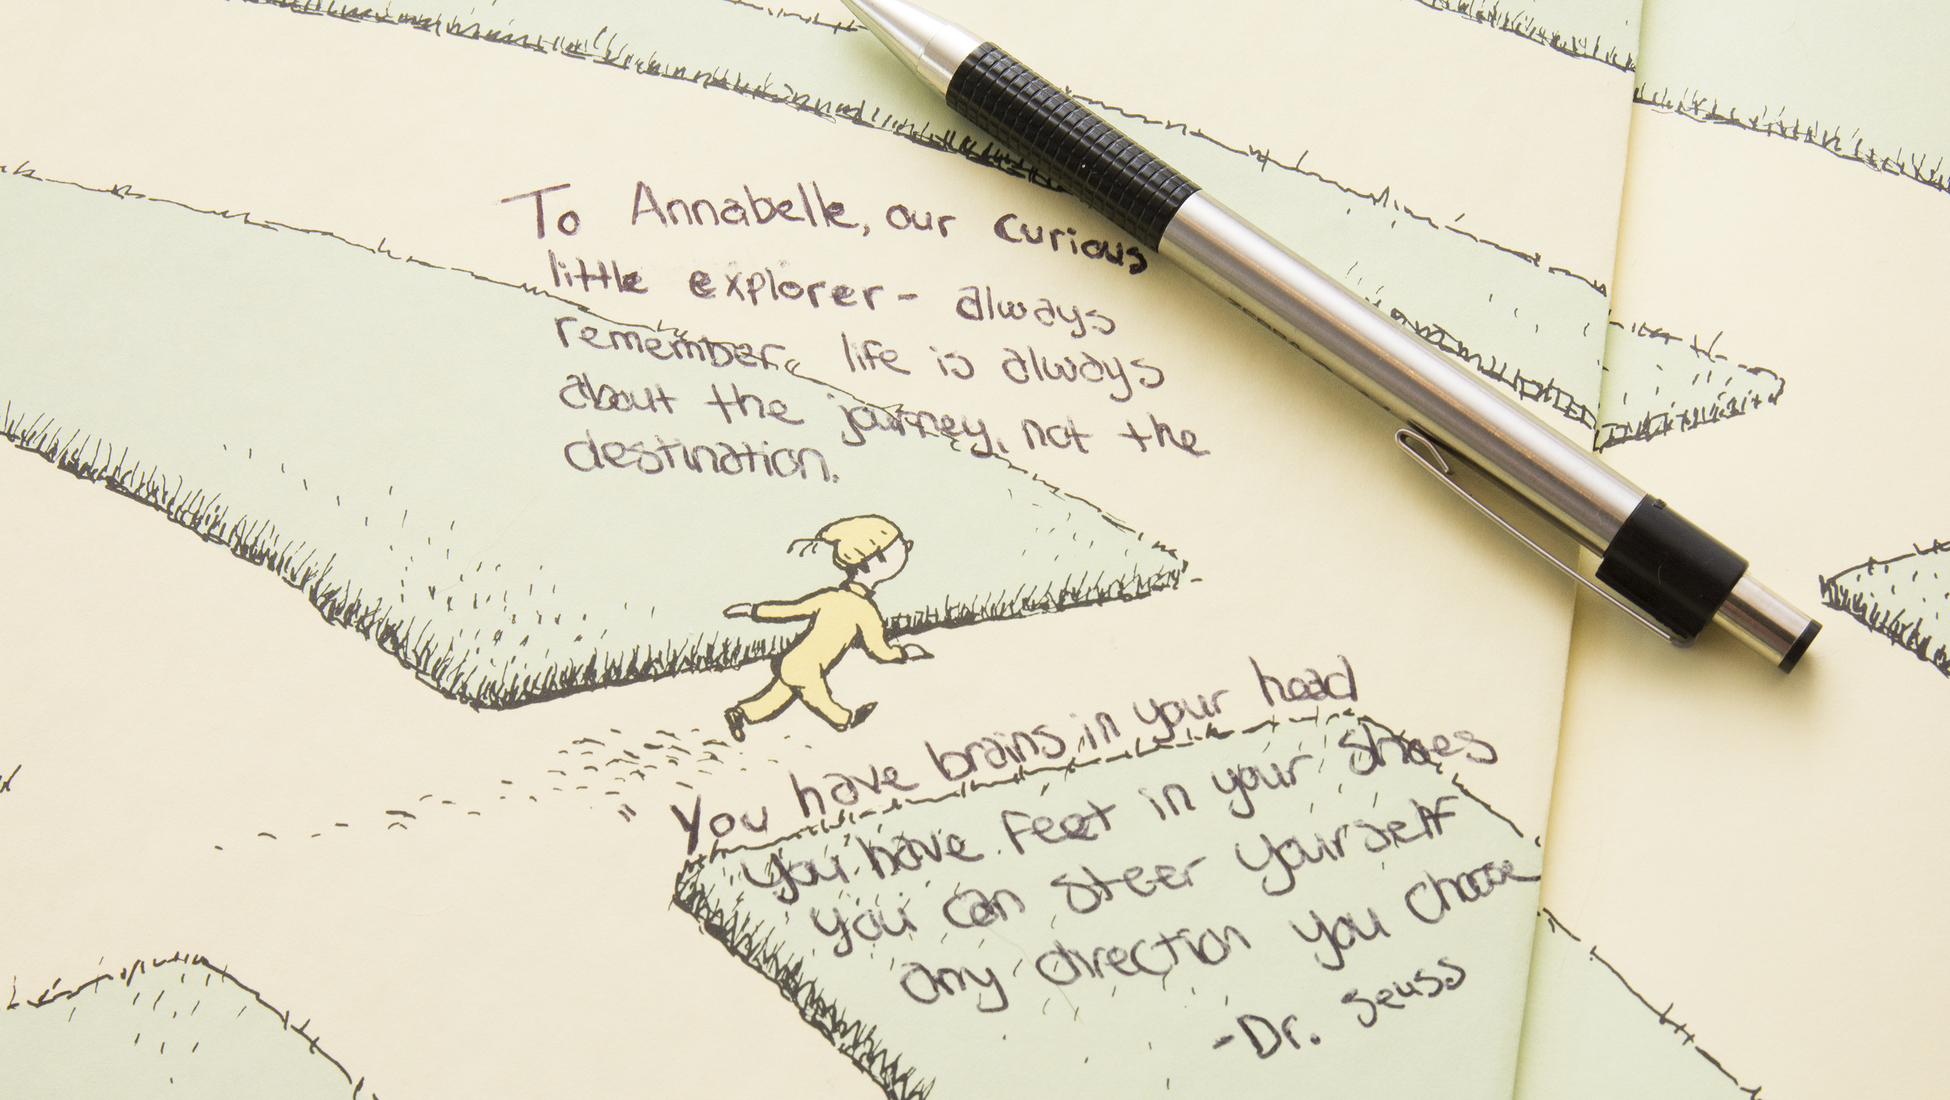 To Annabelle, our curious
little explorer - always
remember, life is always
about the journey, not the
destination.
"You have brains in your head
you have feet in your shoes
you can steer yourself
any direction you choose
-Dr. Seuss